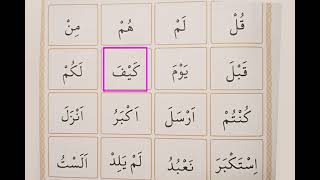 قُلْ لَمْ هُمْ مِنْ
قَبْلَ يَوْمَ كَيْفَ لَكُمْ
كُنْتُمْ اَرْسَلَ اَكْبَرُ اَنْزَلَ
اِسْتَكْبَرَ نَعْبُدُ لَمْ يَلِدْ اَلَسْتُ